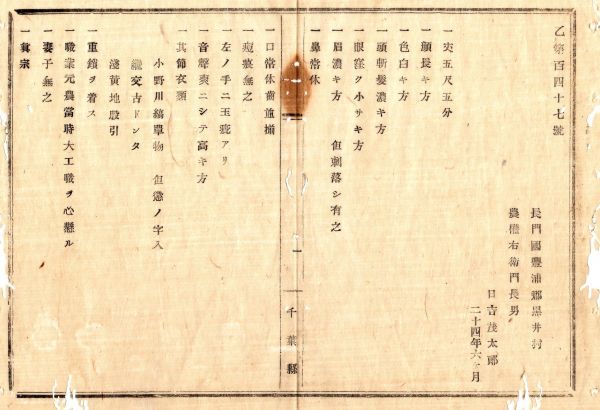 乙第百四十七號
長門國豐浦郡黒井村
農權右衛門長男
日吉茂太郎
二十四年六ヶ月
一丈五尺五分
一顔長キ方
一色白キ方
一頭斬髮濃キ方
一眼窪ク小サキ方
一眉濃キ方 但剃落シ有之
一鼻常体
千葉縣
一口常体齒並揃
一痘痕無之
一左ノ手ニ玉疵アリ
一音聲爽ニシテ高キ方
一其節衣類
小野川縞單物 但懲ノ字入
織交古ドンタ
淺黄地股引
一重鎖ヲ着ス
一職業元農當時大工職ヲ心懸ル
一妻子無之
一眞宗